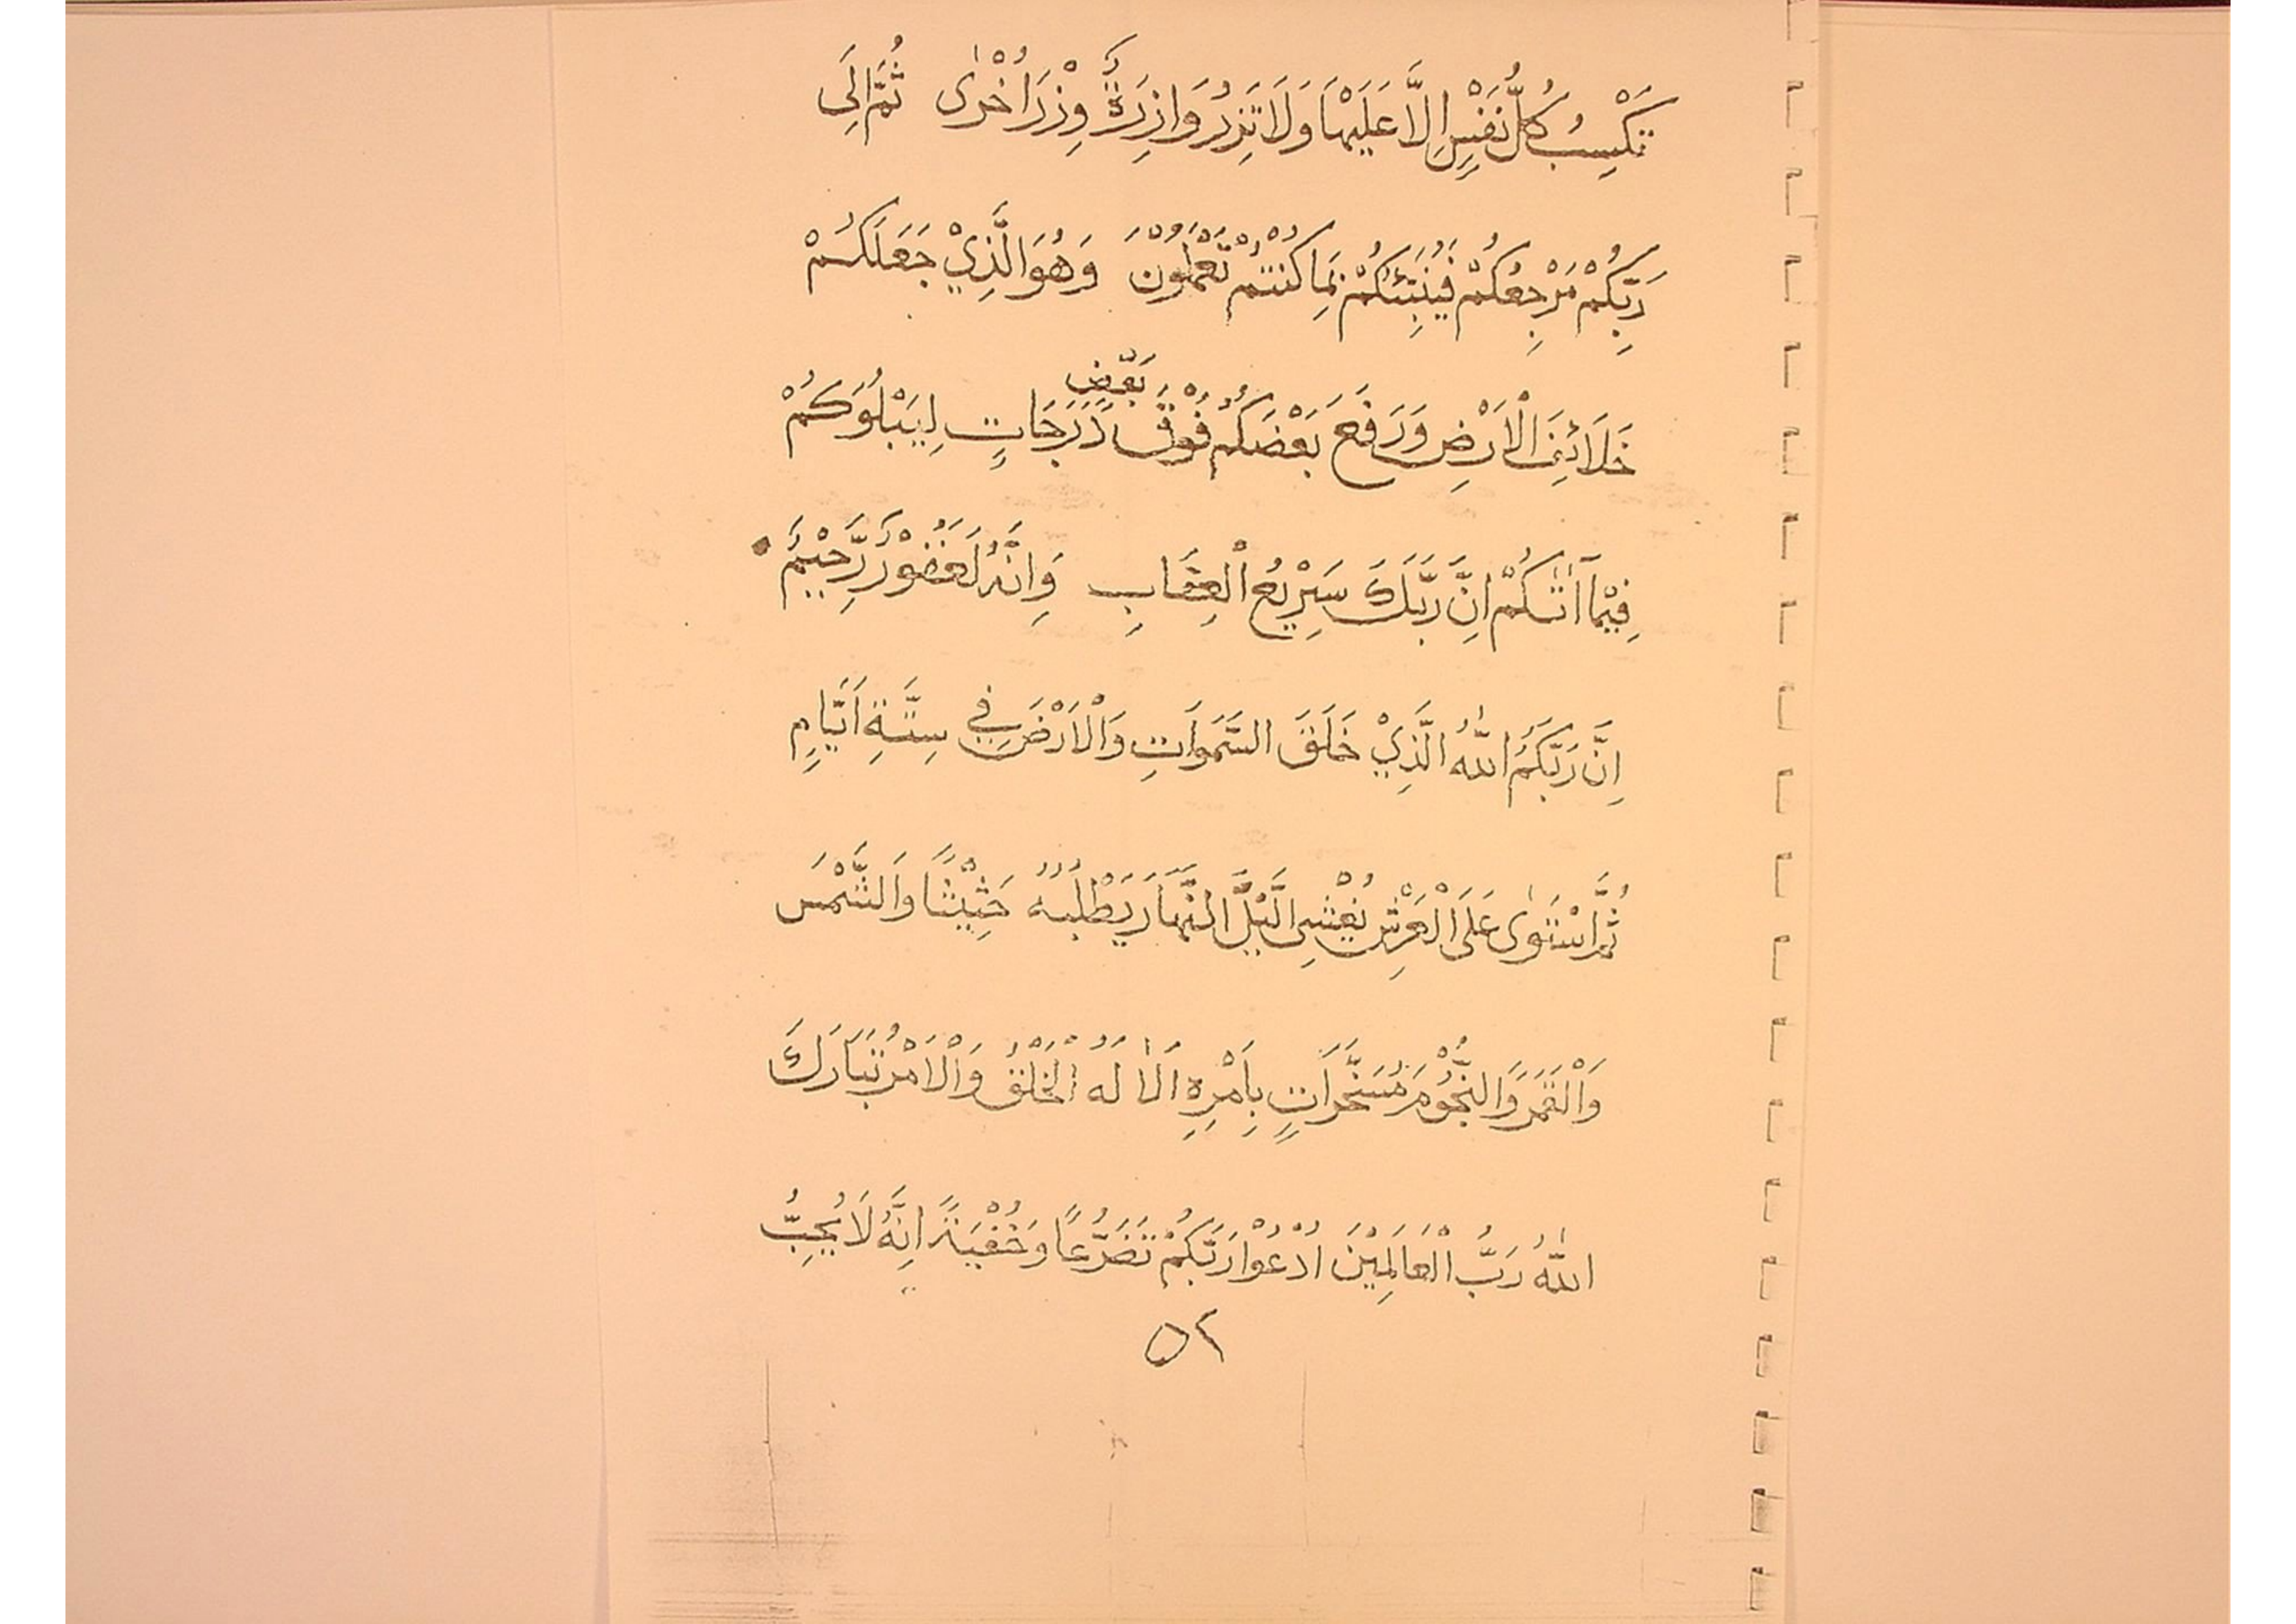 تَكْسِبُ كُلُّ نَفْسٍ اِلَّا عَلَيْهَا وَلَا تَزِرُ وَازِرَةٌ وِزْرَ اُخْرٰى ثُمَّ اِلَى
رَبِّكُمْ مَرْجِعُكُمْ فَيُنَبِّئُكُمْ بِمَا كُنْتُمْ تَعْمَلُوْنَ وَهُوَ الَّذِيْ جَعَلَكُمْ
خَلَائِفَ الْاَرْضِ وَرَفَعَ بَعْضَكُمْ فَوْقَ بَعْضٍ دَرَجَاتٍ لِيَبْلُوَكُمْ
فِيْمَآ اٰتٰىكُمْ اِنَّ رَبَّكَ سَرِيْعُ الْعِقَابِ وَاِنَّهُ لَغَفُوْرٌ رَّحِيْمٌ
اِنَّ رَبَّكُمُ اللّٰهُ الَّذِيْ خَلَقَ السَّمَوَاتِ وَالْاَرْضَ فِي سِتَّةِ اَيَّامٍ
ثُمَّ اسْتَوٰى عَلَى الْعَرْشِ يُغْشِى الَّيْلَ النَّهَارَ يَطْلُبُهُ حَثِيْثًا وَالشَّمْسَ
وَالْقَمَرَ وَالنُّجُوْمَ مُسَخَّرَاتٍ بِاَمْرِهِ اَلَا لَهُ الْخَلْقُ وَالْاَمْرُ تَبَارَكَ
اللّٰهُ رَبُّ الْعَالَمِيْنَ اُدْعُوْا رَبَّكُمْ تَضَرُّعًا وَخُفْيَةً اِنَّهُ لَا يُحِبُّ
٥٢